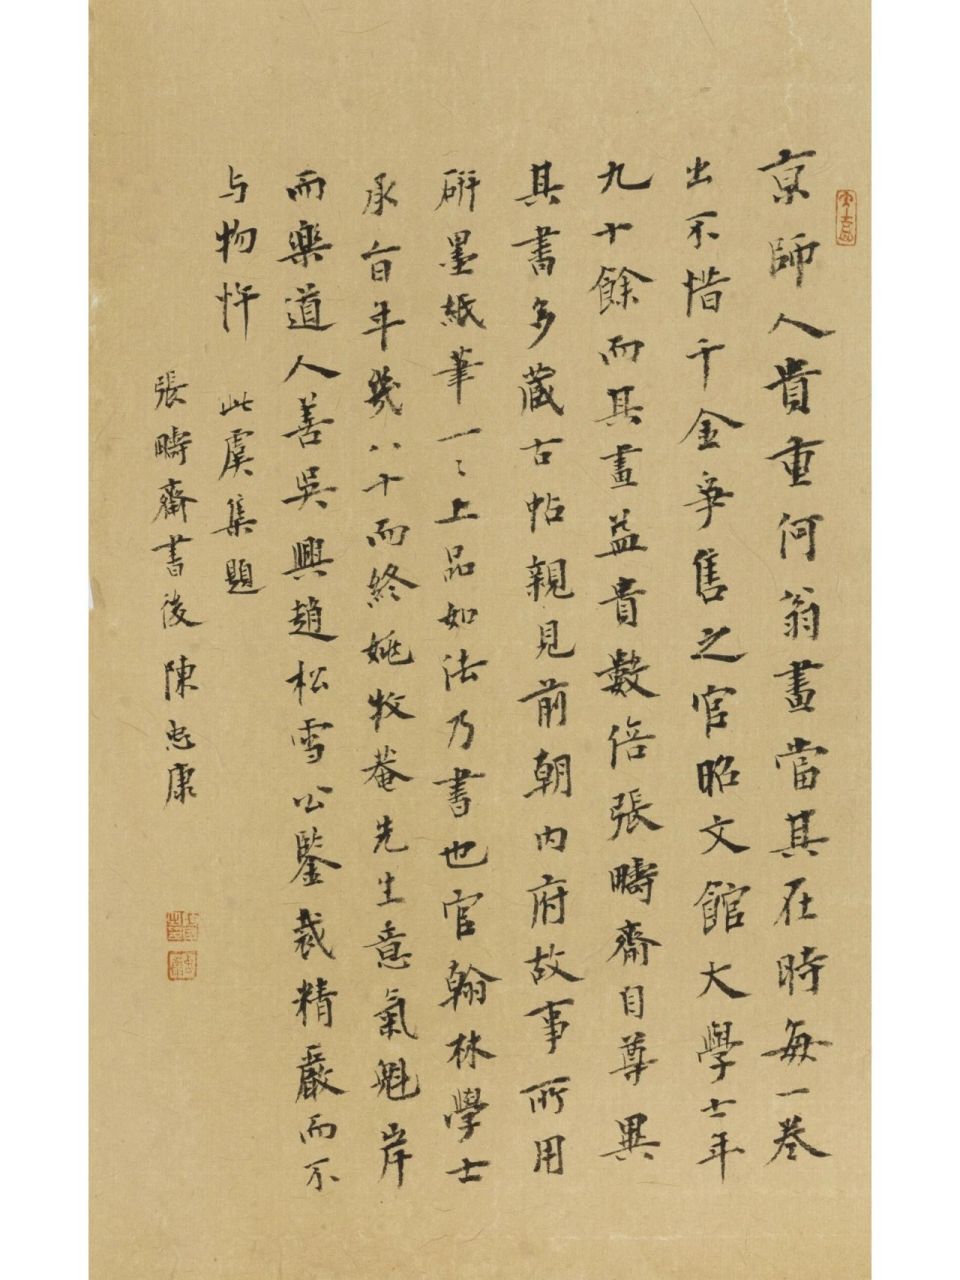 京師人貴重何翁畫當其在時每一卷
出不惜千金爭售之官昭文館大學士年
九十餘而其畫益貴數倍張疇齋自尊異
其書多藏古帖親見前朝內府故事所用
硏墨紙筆一〻上品如法乃書也官翰林學士
承旨年幾八十而終姚牧菴先生意氣魁岸
而樂道人善吳興趙松雪公鑒裁精嚴而不
与物忤 此虞集題
張疇齋書後 陳忠康